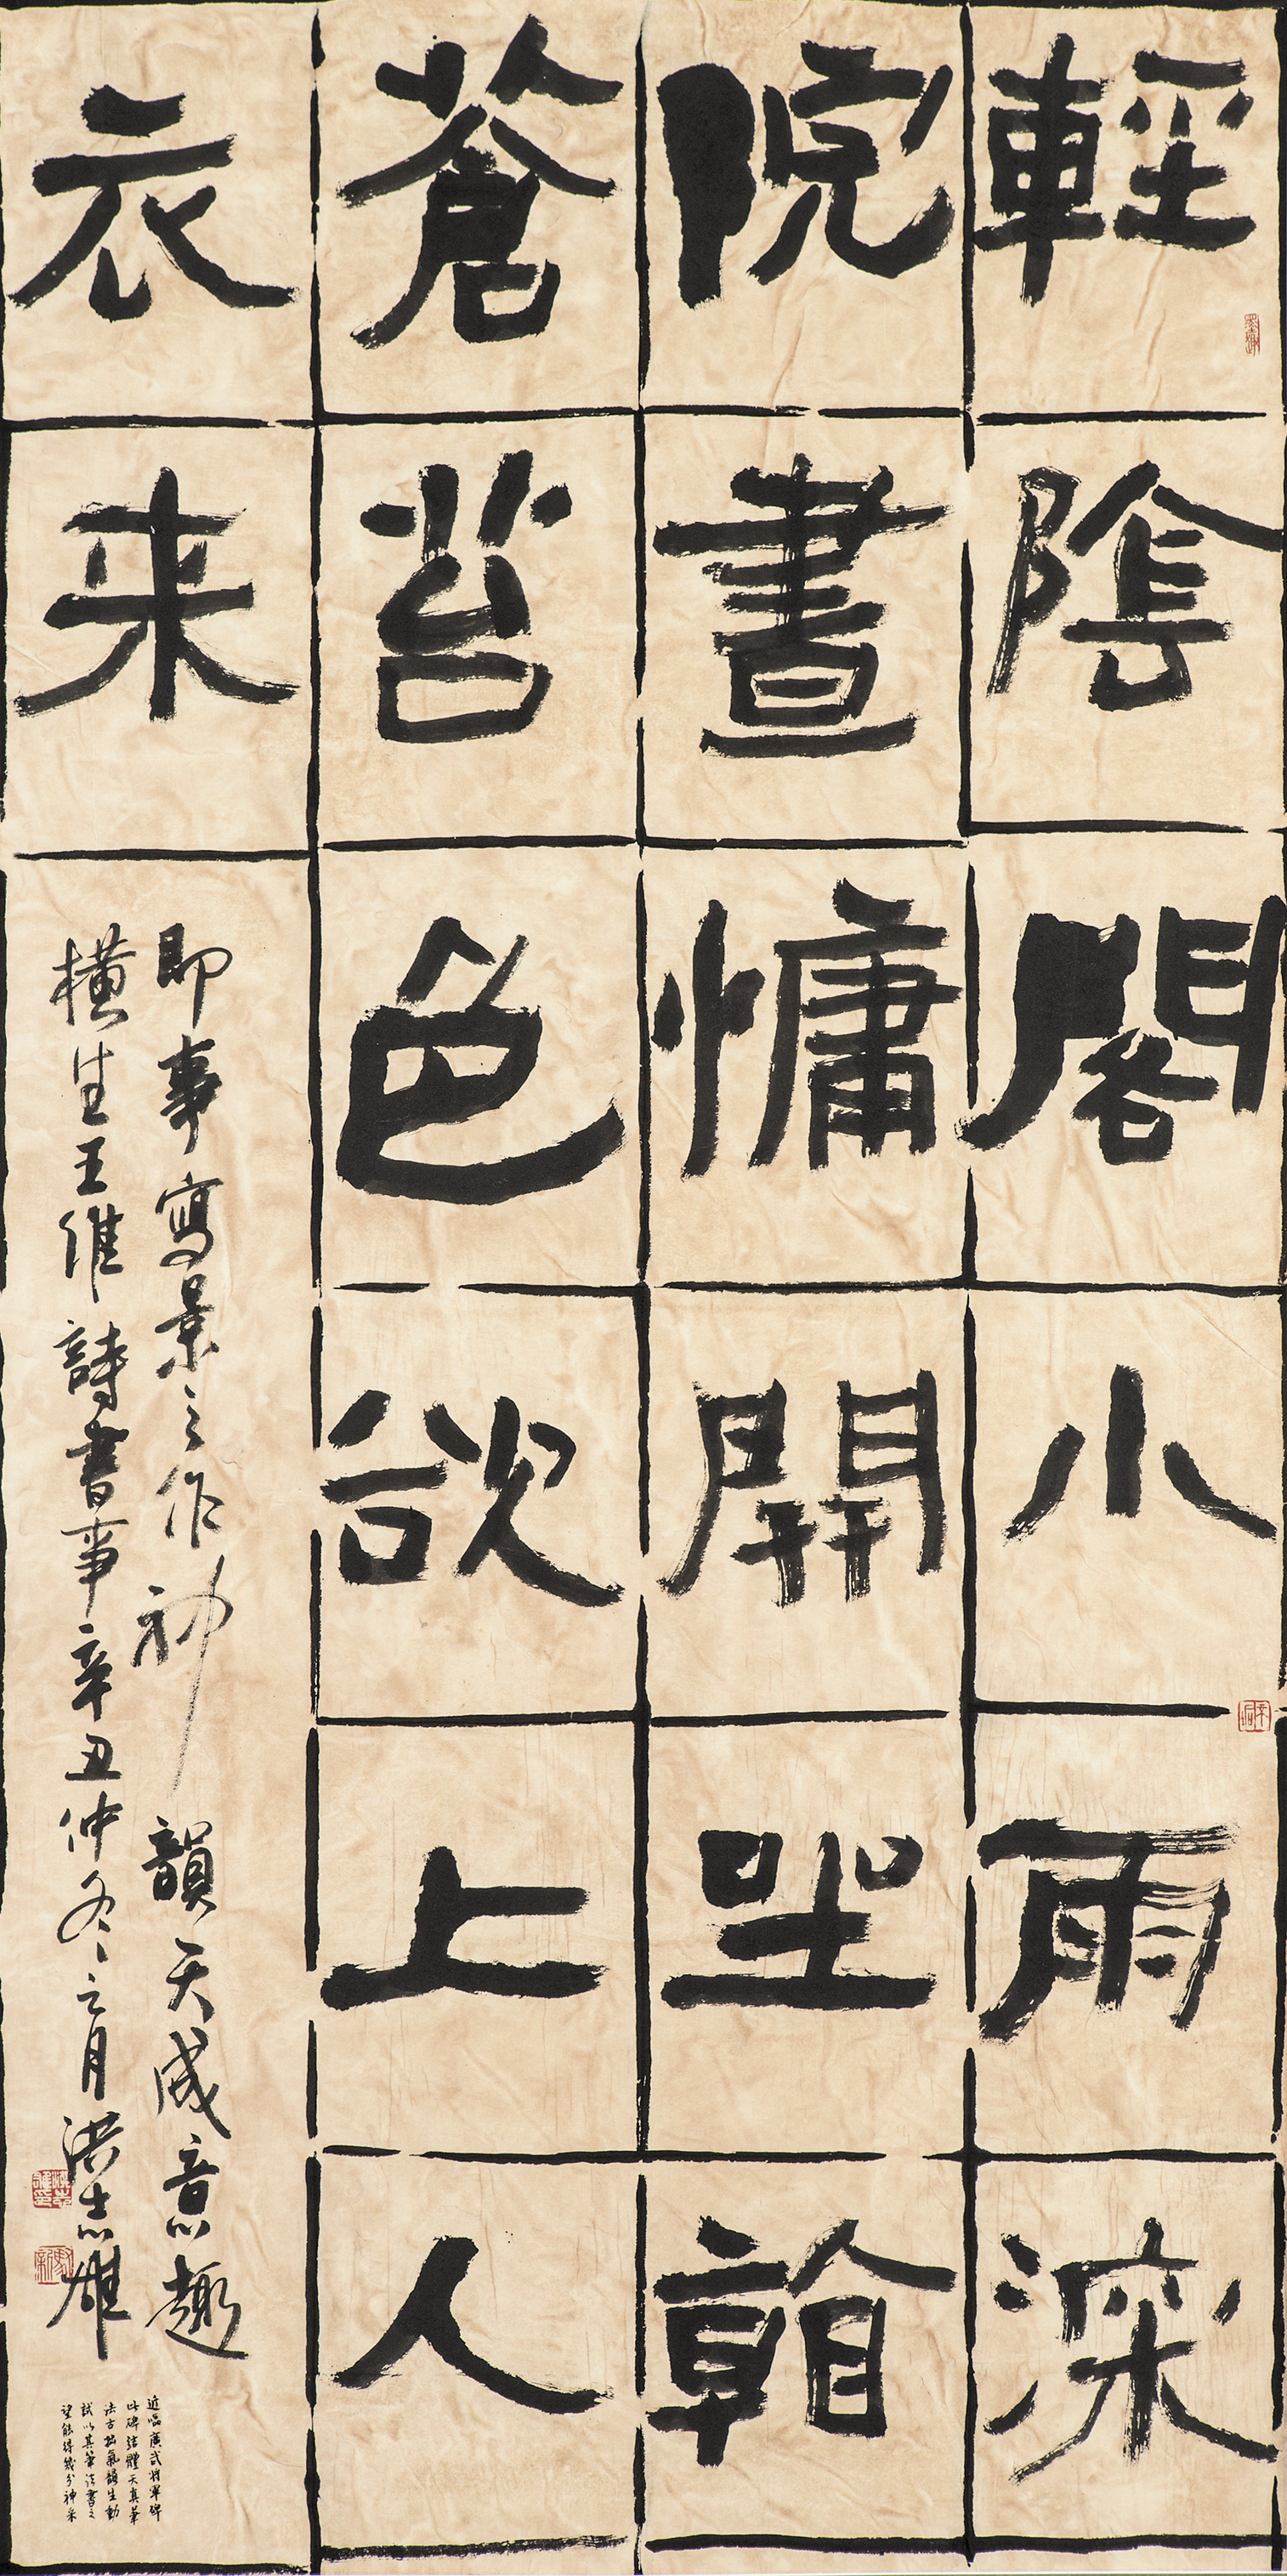 輕陰閣小雨深
院晝慵開坐看
蒼苔色欲上人
衣来
即事寫景之作神韻天成意趣
橫生王維詩書事辛丑仲冬之月洪志雄
近臨廣武將軍碑
此碑結體天真筆
法古拙氣韻生動
試以其筆法書之
望能得幾分神采